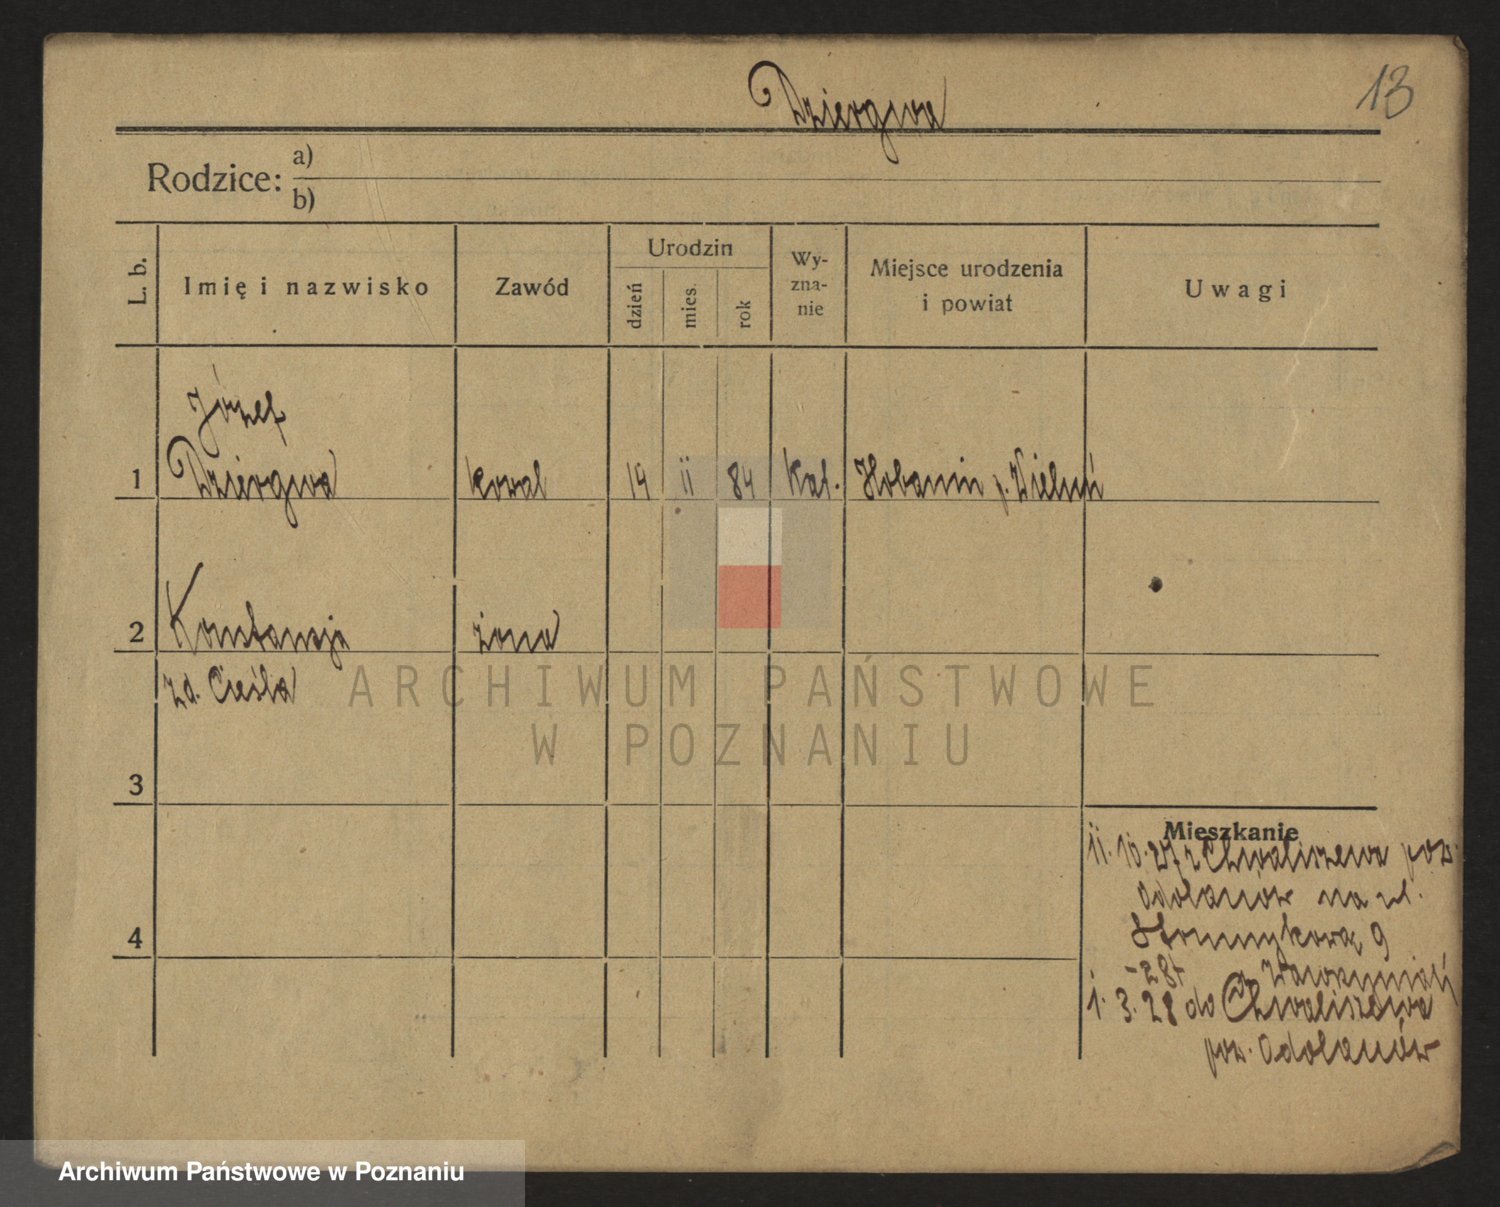 Dziergwa
13
Rodzice: a)
b)
L. b.
Imię i nazwisko
Zawód
Urodzin
dzień
mies.
rok
Wy-
zna-
nie
Miejsce urodzenia
i powiat
Uwagi
Józef
1 Dziergwa kowal 19 ii 84 Kat. p. Wieluń
2 Konstancja żona
zd. Cieśla
ARCHIWUM PAŃSTWOWE
W POZNANIU
3
Mieszkanie
ii. 10. 27 z Chwaliszewa pow.
Odolanów na ul.
9
4
-28r
1. 3. 28 do Chwaliszewa
pow. Odolanów
Archiwum Państwowe w Poznaniu